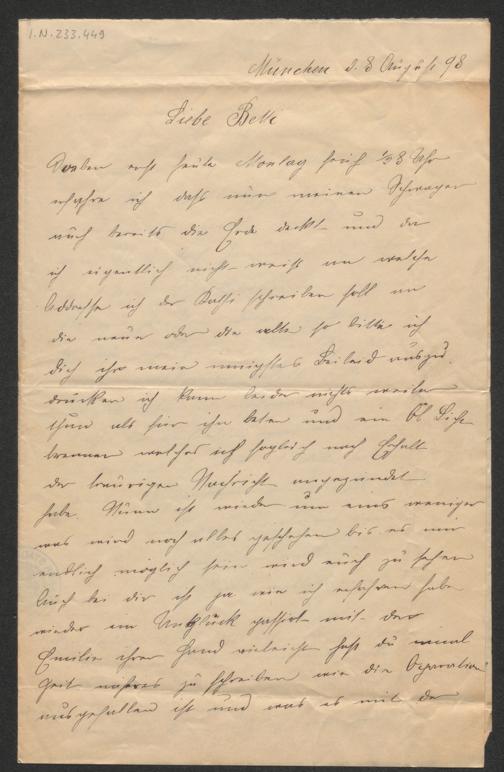 I.N. 233.449
München d. 8 August 98
Liebe Betti
Soeben erst heute Montag früh ½8 Uhr
erfahre ich daß nun meinen Schwager
auch bereits die Erde deckt und da
ich eigentlich nicht weiß an welche
Addresse ich der Kathi schreiben soll an
die neue oder die alte so bitte ich
dich ihr mein innigstes Beileid auszu
drücken ich kann leider nichts weiter
thun als für ihn beten und ein Öl Licht
brennen welches ich sogleich nach Erhalt
der traurigen Nachricht angezündet
habe. Nun ist wieder um eins weniger
was wird noch alles geschehen bis es mir
endlich möglich sein wird euch zu sehen
Auch bei dir ist ja wie ich erfahren habe
wieder ein Unglück passirt mit der
Emilie ihrer Hand vieleicht hast du einmal
Zeit näheres zu schreiben wie die Operation
ausgefallen ist und was es mit der